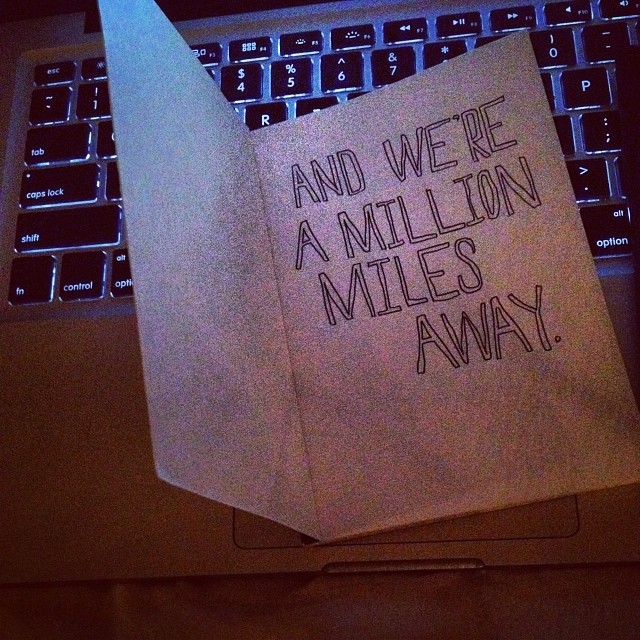 esc F4 F5 F6 F7 F8 F9
~ ! 1 $ 4 % 5 ^ 6 & 7 * ) 0 –
tab R P
caps lock : ;
shift >
fn control alt alt option
AND WE'RE
A MILLION
MILES
AWAY.